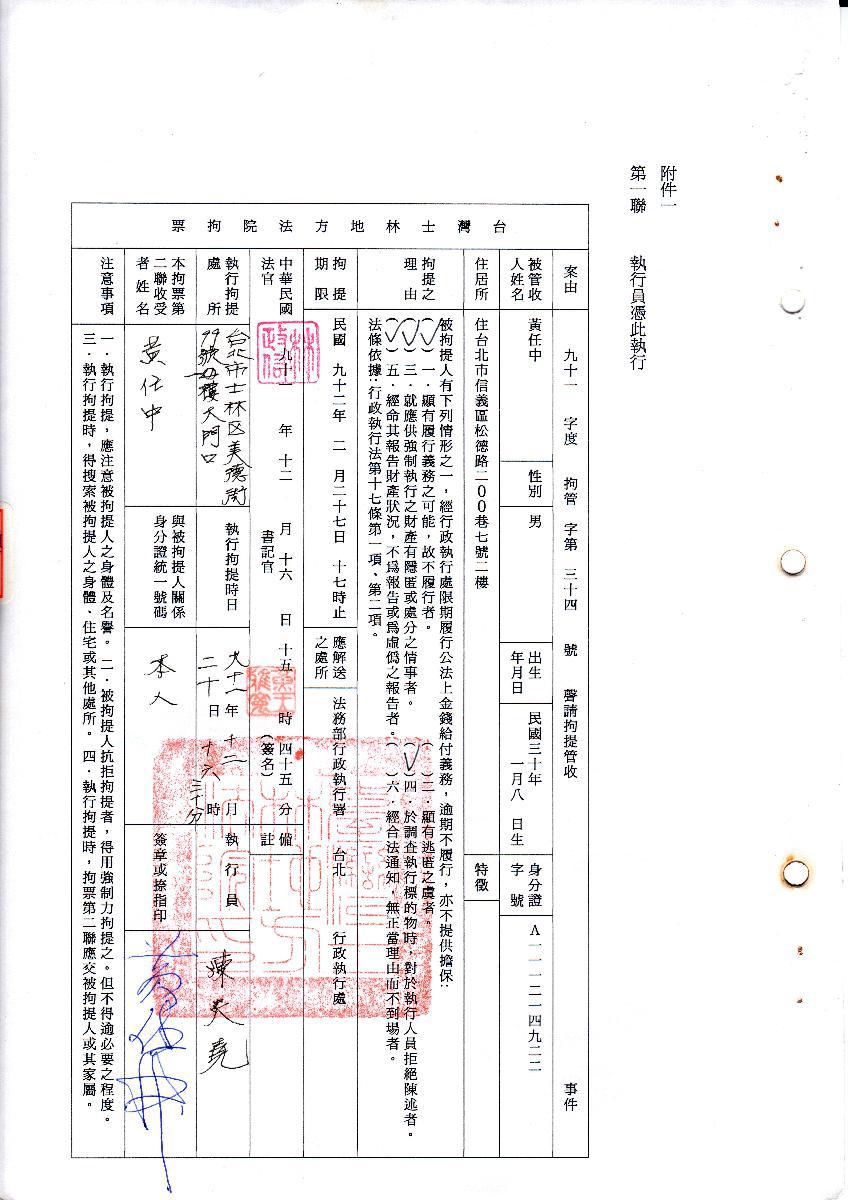 附件一
第一聯 執行員憑此執行
台灣士林地方法院拘票
案由 九十一 字度 拘管 字第 三十四 號 聲請拘提管收 事件
被管收人姓名 黃任中 性別 男 出生年月日 民國三十年一月八日生 身分證字號 A一一一二一四九二二
住居所 住台北市信義區松德路二00巷七號二樓 特徵
拘提之理由
被拘提人有下列情形之一，經行政執行處限期履行公法上金錢給付義務，逾期不履行，亦不提供擔保：
(✓)一．顯有履行義務之可能，故不履行者。 ( )二．顯有逃匿之虞者。
(✓)三．就應供強制執行之財產有隱匿或處分之情事者。 (✓)四．於調查執行標的物時，對於執行人員拒絕陳述者。
(✓)五．經命其報告財產狀況，不為報告或為虛偽之報告者。 ( )六．經合法通知，無正當理由而不到場者。
法條依據：行政執行法第十七條第一項、第二項。
拘提期限 民國 九十二年 二 月二十七日 十七時止 應解送之處所 法務部行政執行署 台北 行政執行處
中華民國 九十一 年 十二 月 十六 日 十五 時 四十五 分 備註
法官 書記官 (簽名)
執行拘提處所 台北市士林区美德街99號四樓大門口 執行拘提時日 九十一年十二月二十日十六時三十分 執行員
本拘票第二聯收受者姓名 黃任中 與被拘提人關係身分證統一號碼 本人 簽章或捺指印
注意事項
一．執行拘提，應注意被拘提人之身體及名譽。 二．被拘提人抗拒拘提者，得用強制力拘提之。但不得逾必要之程度。
三．執行拘提時，得搜索被拘提人之身體、住宅或其他處所。 四．執行拘提時，拘票第二聯應交被拘提人或其家屬。